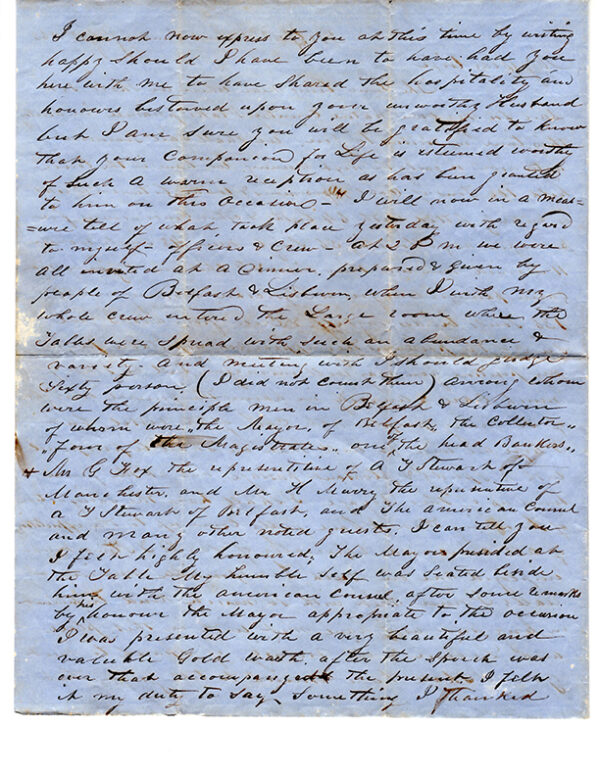 I cannot now express to you at this time by writing
happy Should I have been to have had you
here with me to have Shared the hospitality and
honours bestowed upon your unworthy Husband
but I am sure you will be gratified to know
that your Companion for Life is esteemed worthy
of Such a warm reception as has been granted
to him on this Occasion - I will now in a meas=
=ure tell of what took place yesterday with regard
to myself - officers & Crew - at 2 P m we were
all invited at a Dinner, prepared & given by
people of Belfast & Lisburn, when I with my
whole crew entered the Large room where the
Tables were Spread with Such an abundance &
variety. And meeting with I should judge
Sixty person (I did not count them) among whom
were the principle men in Belfast & Lisburn
of whom were "the Mayor, of Belfast, the Collector"
"Four of the Magistrates" one of "the head Bankers"
+ Mr G Fox the representitive of A T Stewart of
Manchester, and Mr H Murry the representive of
A T Stewart of Belfast, and The American Consul
and many other noted guests. I can tell you
I felt highly honoured; The Mayor presided at
the Table My humble self was Seated beside
him with the american Consul. after some remarks
by his honour the Mayor appropriate to the occasion
I was presented with a very beautiful and
valuable Gold watch. after the Speech was
over that accompanyed the present. I felt
it my duty to Say Something I Thanked